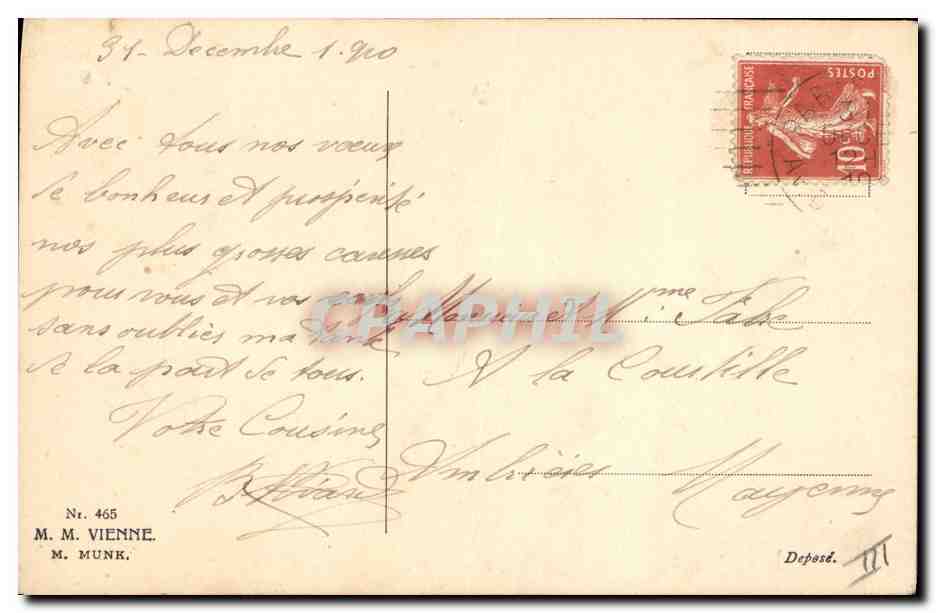 31 - Decembre 1.910
Avec tous nos voeux
de bonheur et prospérité
nos plus grosses caresses
pour vous et vos
sans oublier ma tante
de la part de tous.
Votre Cousine
Monsieur et Mme
A la
Ambrières Mayenne
RÉPUBLIQUE FRANÇAISE
POSTES
10
CRAPHIL
Nr. 465
M. M. VIENNE.
M. MUNK.
Deposé.
III